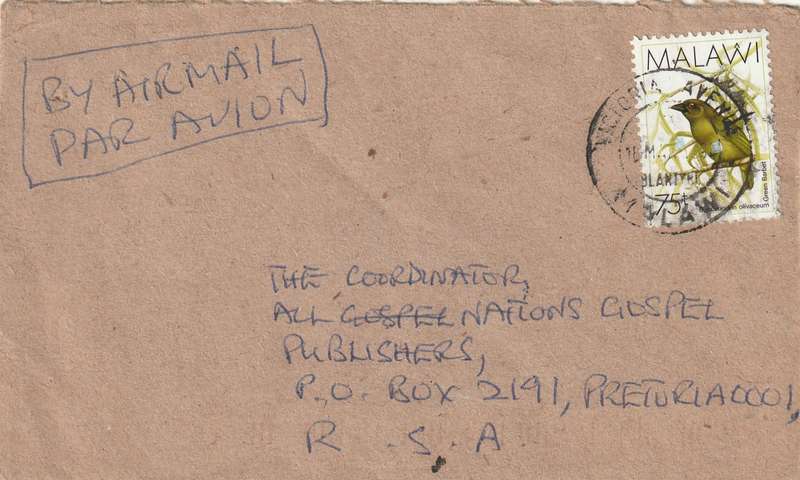 BY AIRMAIL
PAR AVION
MALAWI
VICTORIA AVENUE
BLANTYRE
MALAWI
75t
olivaceum Green Barbet
THE COORDINATOR,
ALL GOSPEL NATIONS GOSPEL
PUBLISHERS,
P.O. BOX 2191, PRETORIA 0001,
R.S.A.